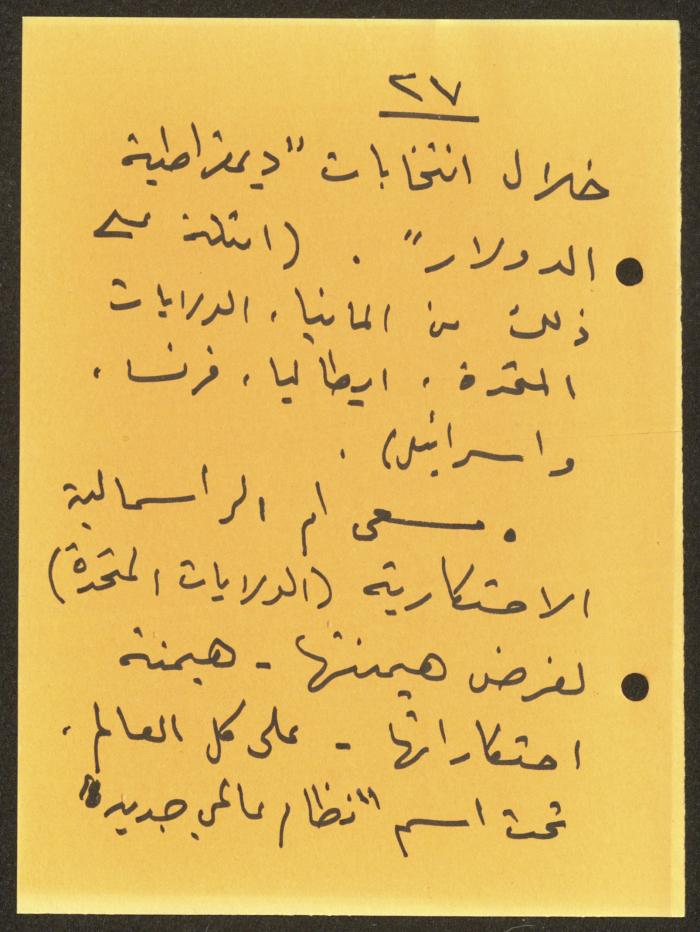 ٢٧
خلال انتخابات "ديمقراطية
الدولار" . (امثلة على
ذلك من المانيا، الولايات
المتحدة، ايطاليا، فرنسا،
واسرائيل) .
. سعى ام الرأسمالية
الاحتكارية (الولايات المتحدة)
لفرض هيمنتها - هيمنة
احتكاراتها - على كل العالم،
تحت اسم "نظام عالمي جديد"